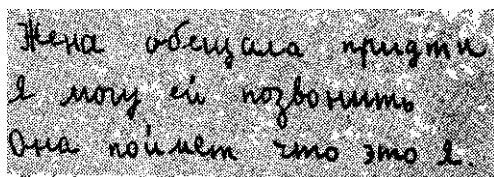 Жена обещала придти
Я могу ей позвонить
Она поймет что это я.